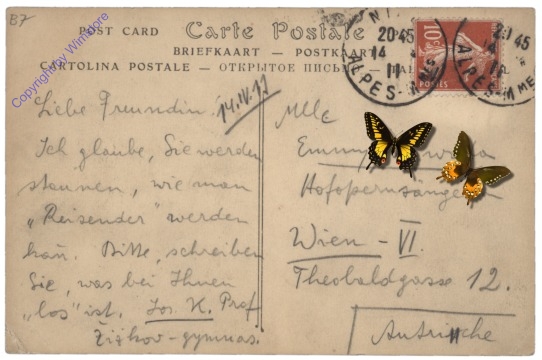 B7
Copyright by Wimdore
POST CARD Carte Postale
BRIEFKAART — POSTKAART
CARTOLINA POSTALE — ОТКРЫТОЕ ПИСЬ
20 45
14 4
11
ALPES-
10
POSTES
14.IV.11
Liebe Freundin!
Ich glaube, Sie werden
staunen, wie man
„Reisender" werden
kan. Bitte, schreiben
Sie, was bei Ihnen
„los" ist. Jos. K. Prof
Žižkov-gymnas.
Mlle
Hofopernsängerin
Wien - VI.
Theobaldgasse 12.
Autriche